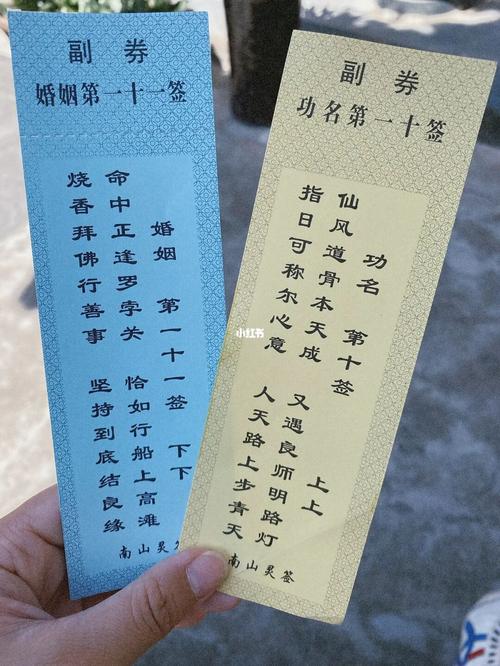 副券
婚姻第一十一签
婚姻 第一十一签 下下
命中正逢罗孛关 恰如行船上高滩
烧香拜佛行善事 坚持到底结良缘
南山灵签
副券
功名第一十签
功名 第十签 上上
仙风道骨本天成 又遇良师明路灯
指日可称尔心意 人天路上步青天
南山灵签
小红书